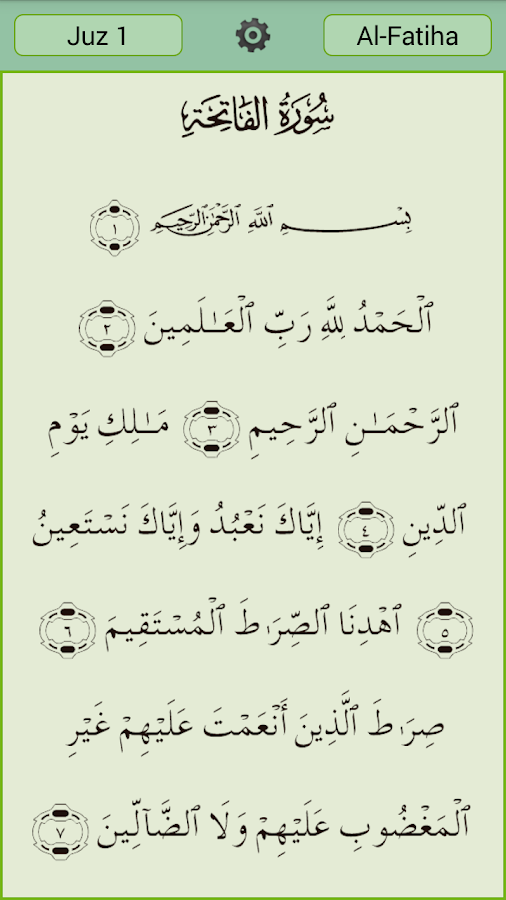 Juz 1
Al-Fatiha
سُورَةُ الفَاتِحَةِ
بِسْمِ ٱللَّهِ ٱلرَّحْمَٰنِ ٱلرَّحِيمِ ١
ٱلْحَمْدُ لِلَّهِ رَبِّ ٱلْعَـٰلَمِينَ ٢
ٱلرَّحْمَـٰنِ ٱلرَّحِيمِ ٣ مَـٰلِكِ يَوْمِ
ٱلدِّينِ ٤ إِيَّاكَ نَعْبُدُ وَإِيَّاكَ نَسْتَعِينُ
٥ ٱهْدِنَا ٱلصِّرَٰطَ ٱلْمُسْتَقِيمَ ٦
صِرَٰطَ ٱلَّذِينَ أَنْعَمْتَ عَلَيْهِمْ غَيْرِ
ٱلْمَغْضُوبِ عَلَيْهِمْ وَلَا ٱلضَّآلِّينَ ٧